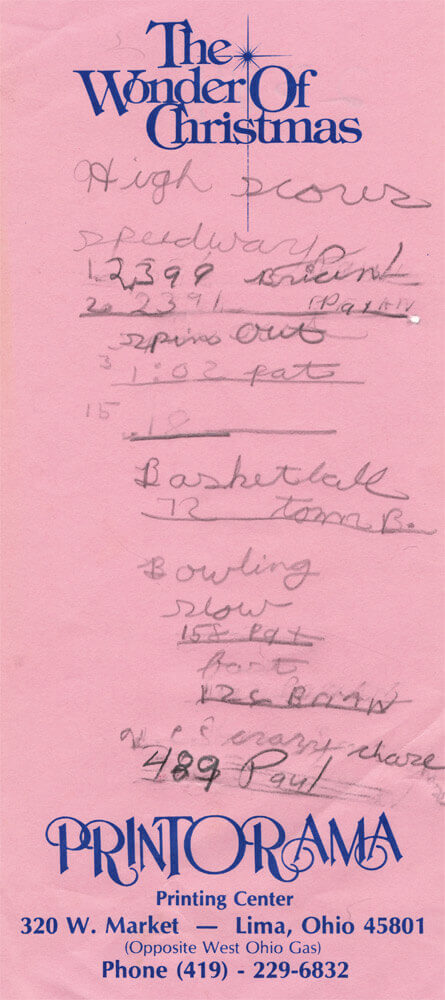 The
Wonder Of
Christmas
High scores
speedway
1. 2,399
2. 2391
spin Out
3 1:02 pat
15 .18
Basketball
72 tom B.
Bowling
slow
158 Pat
fast
126 BRIAN
crazy chase
489 Paul
PRINT-O-RAMA
Printing Center
320 W. Market — Lima, Ohio 45801
(Opposite West Ohio Gas)
Phone (419) - 229-6832